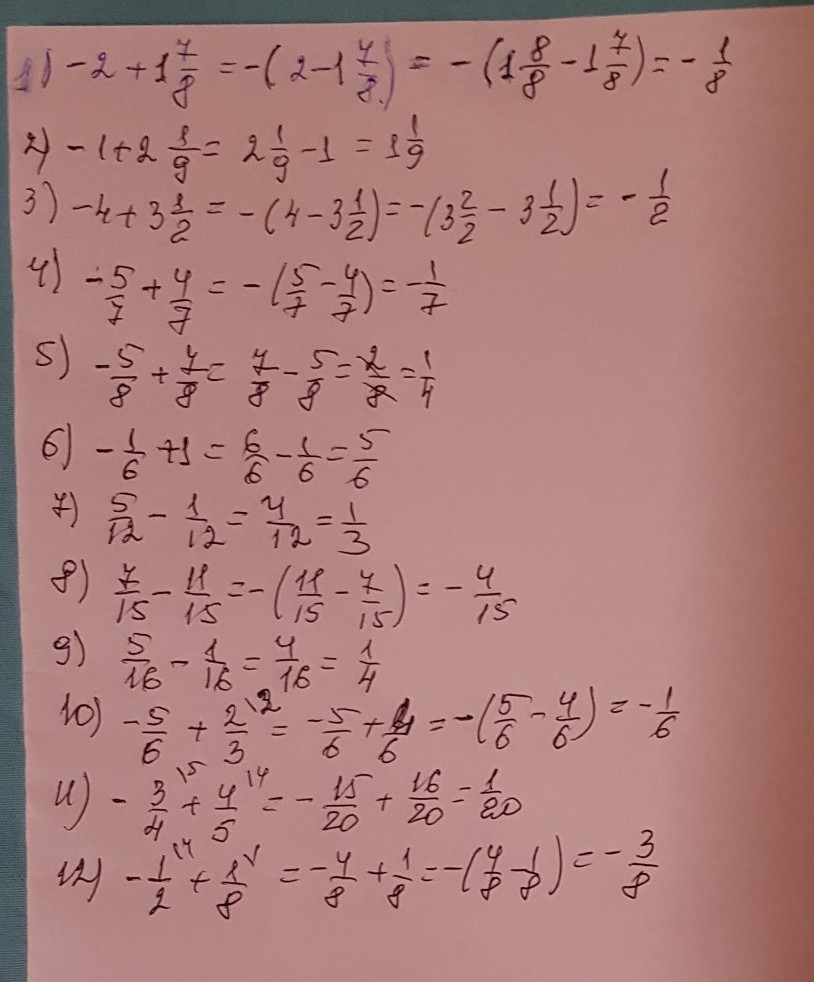 1) -2 + 1 7/8 = -(2 - 1 7/8) = -(1 8/8 - 1 7/8) = - 1/8
2) -1 + 2 1/9 = 2 1/9 - 1 = 1 1/9
3) -4 + 3 1/2 = -(4 - 3 1/2) = -(3 2/2 - 3 1/2) = - 1/2
4) - 5/7 + 4/7 = -(5/7 - 4/7) = - 1/7
5) - 5/8 + 7/8 = 7/8 - 5/8 = 2/8 = 1/4
6) - 1/6 + 1 = 6/6 - 1/6 = 5/6
7) 5/12 - 1/12 = 4/12 = 1/3
8) 7/15 - 11/15 = -(11/15 - 7/15) = - 4/15
9) 5/16 - 1/16 = 4/16 = 1/4
10) - 5/6 + 2/3 \2 = - 5/6 + 4/6 = -(5/6 - 4/6) = - 1/6
11) - 3/4 \5 + 4/5 \4 = - 15/20 + 16/20 = 1/20
12) - 1/2 \4 + 1/8 \1 = - 4/8 + 1/8 = -(4/8 - 1/8) = - 3/8